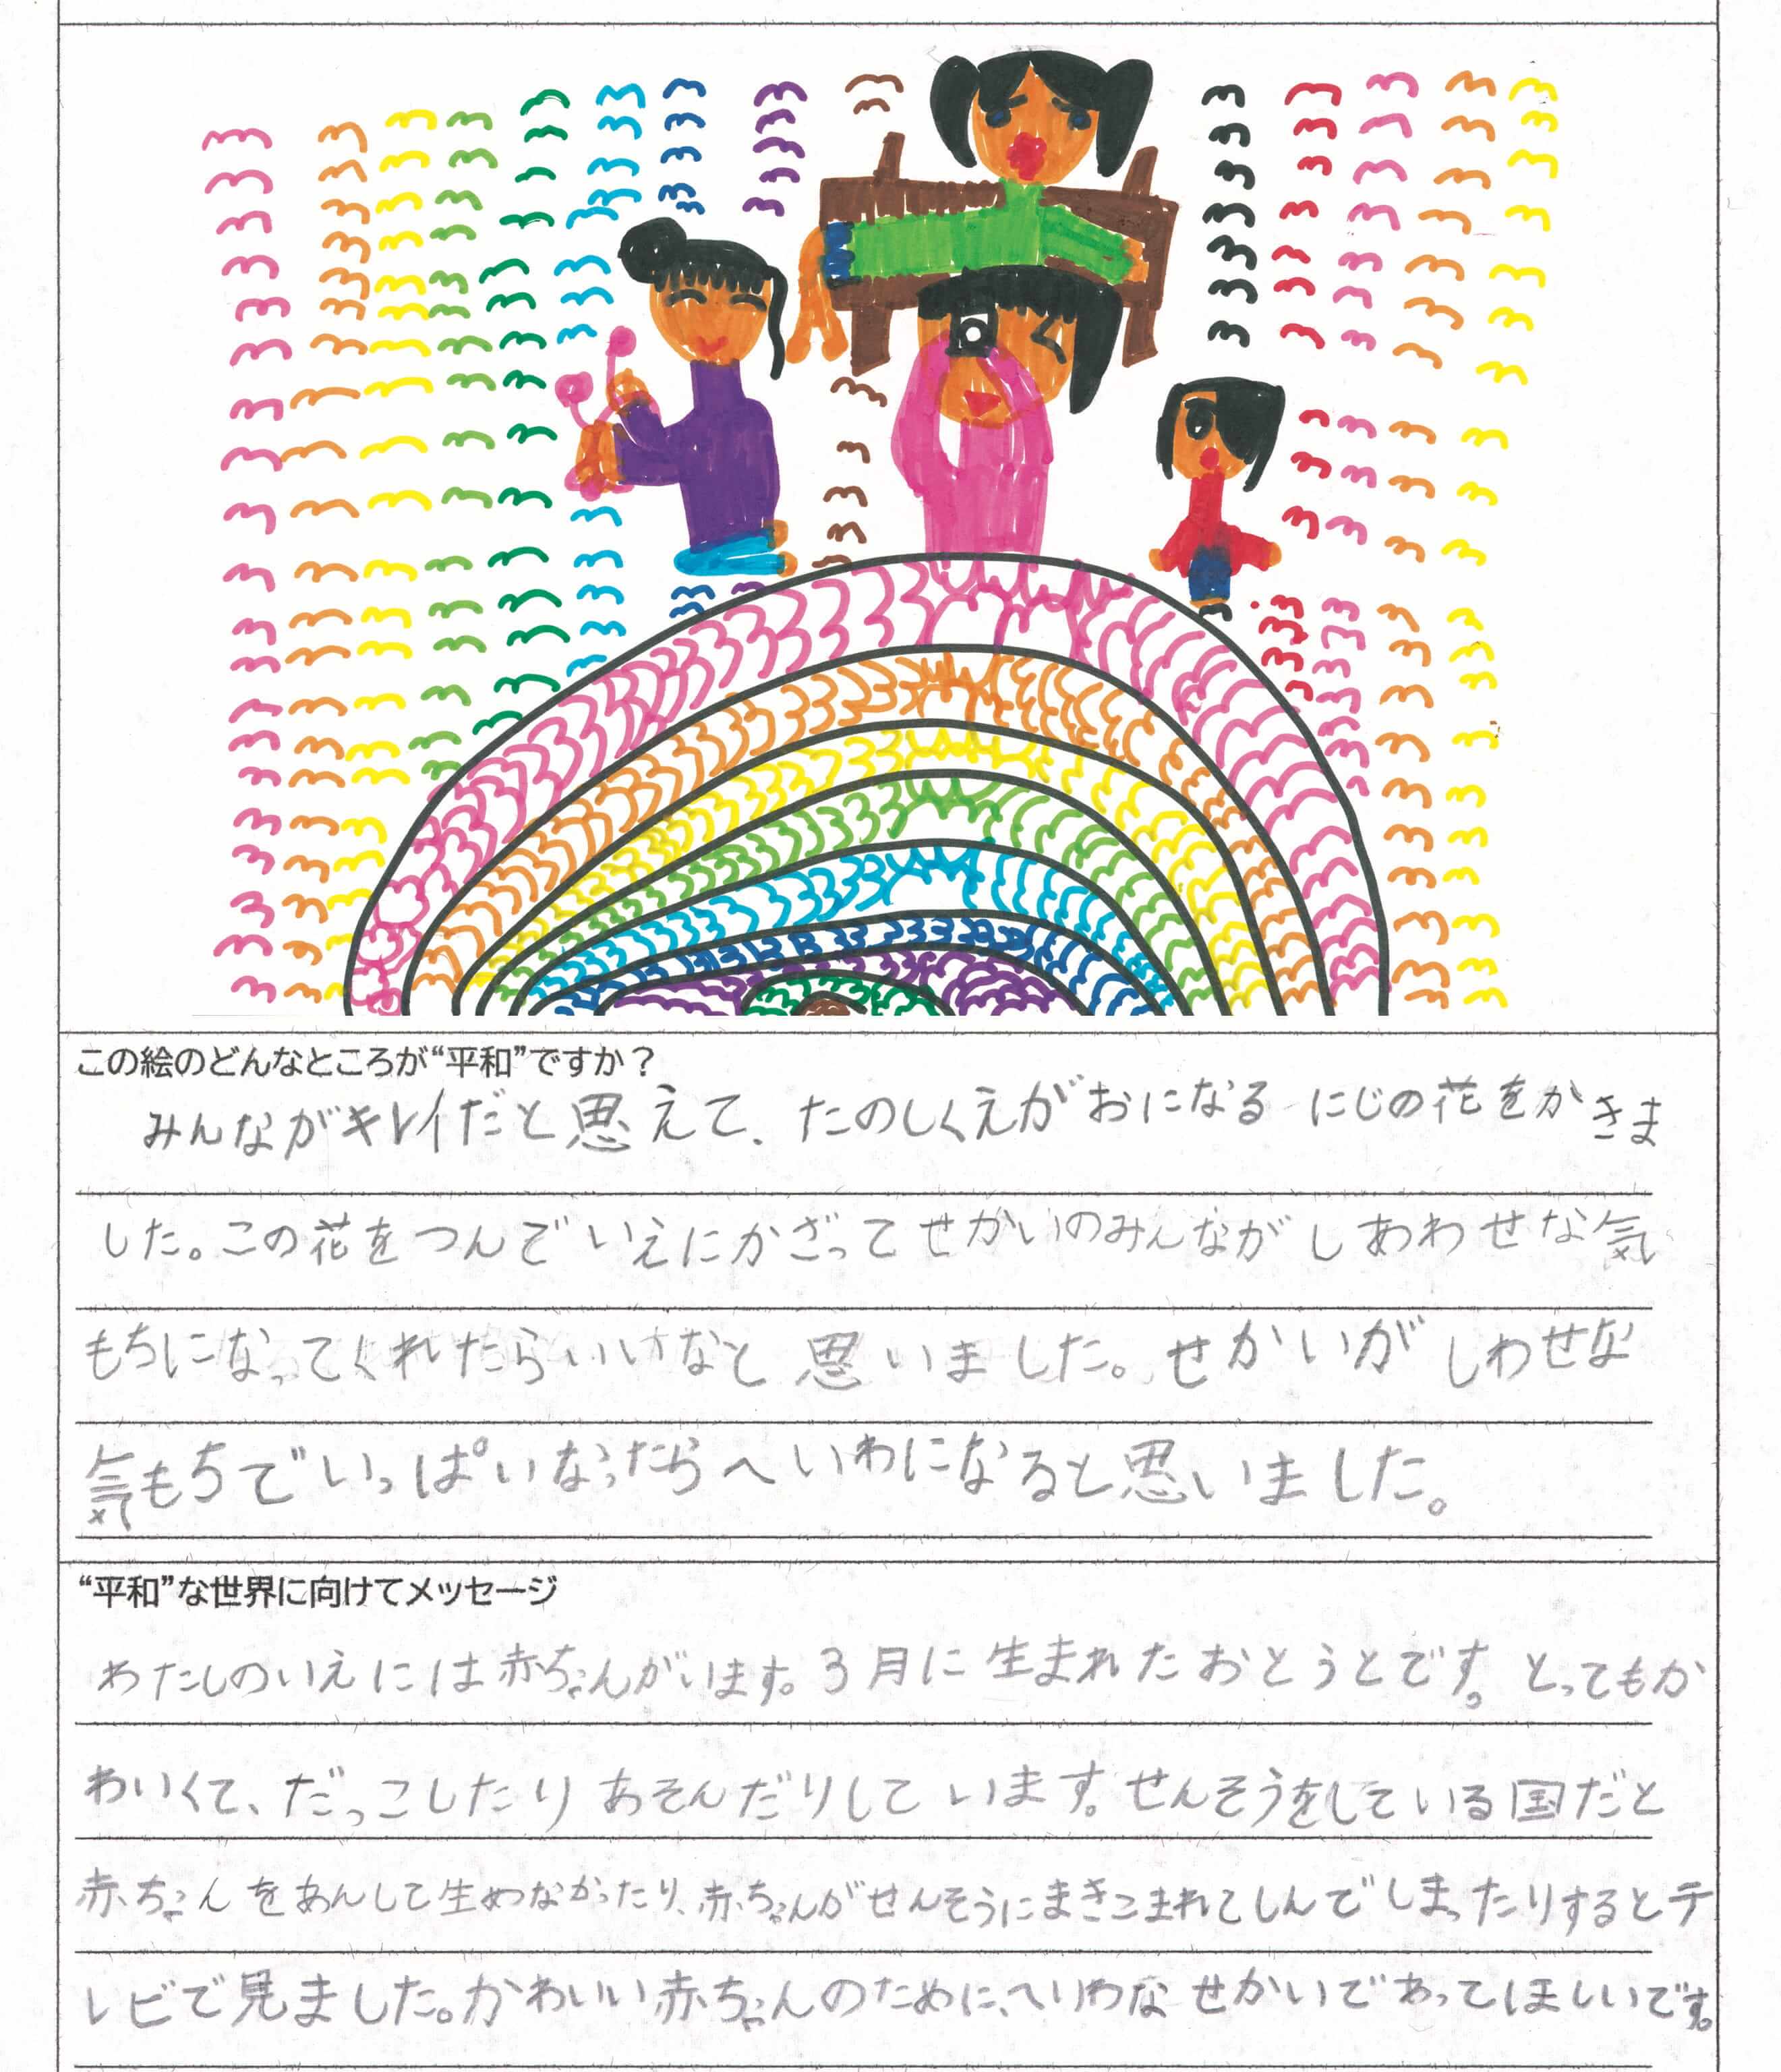 この絵のどんなところが“平和”ですか？
みんながキレイだと思えて、たのしくえがおになる にじの花をかきま
した。この花をつんでいえにかざってせかいのみんながしあわせな気
もちになってくれたらいいなと思いました。せかいがしわせな
気もちでいっぱいなったらへいわになると思いました。
“平和”な世界に向けてメッセージ
わたしのいえには赤ちゃんがいます。3月に生まれたおとうとです。とってもか
わいくて、だっこしたりあそんだりしています。せんそうをしている国だと
赤ちゃんをあんして生めなかったり、赤ちゃんがせんそうにまきこまれてしんでしまったりするとテ
レビで見ました。かわいい赤ちゃんのために、へいわなせかいであってほしいです。